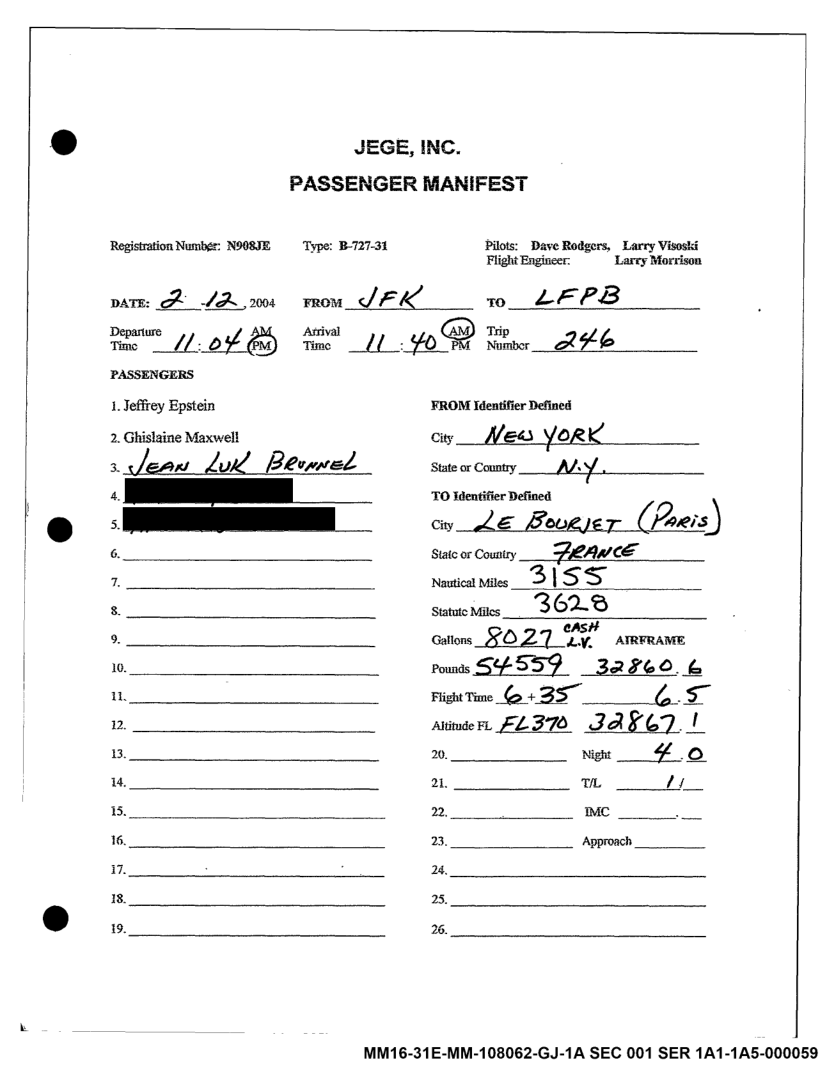 JEGE, INC.
PASSENGER MANIFEST
Registration Number: N908JE Type: B-727-31 Pilots: Dave Rodgers, Larry Visoski
Flight Engineer: Larry Morrison
DATE: 2-12, 2004 FROM JFK TO LFPB
Departure Time 11:04 AM PM Arrival Time 11:40 AM PM Trip Number 246
PASSENGERS
1. Jeffrey Epstein FROM Identifier Defined
2. Ghislaine Maxwell City NEW YORK
3. JEAN LUK BRUNNEL State or Country N.Y.
4. TO Identifier Defined
5. City LE BOURJET (PARIS)
6. State or Country FRANCE
7. Nautical Miles 3155
8. Statute Miles 3628
9. Gallons 8027 CASH L.V. AIRFRAME
10. Pounds 54559 32860.6
11. Flight Time 6+35 6.5
12. Altitude FL FL370 32867.1
13. 20. Night 4.0
14. 21. T/L 1/
15. 22. IMC
16. 23. Approach
17. 24.
18. 25.
19. 26.
MM16-31E-MM-108062-GJ-1A SEC 001 SER 1A1-1A5-000059